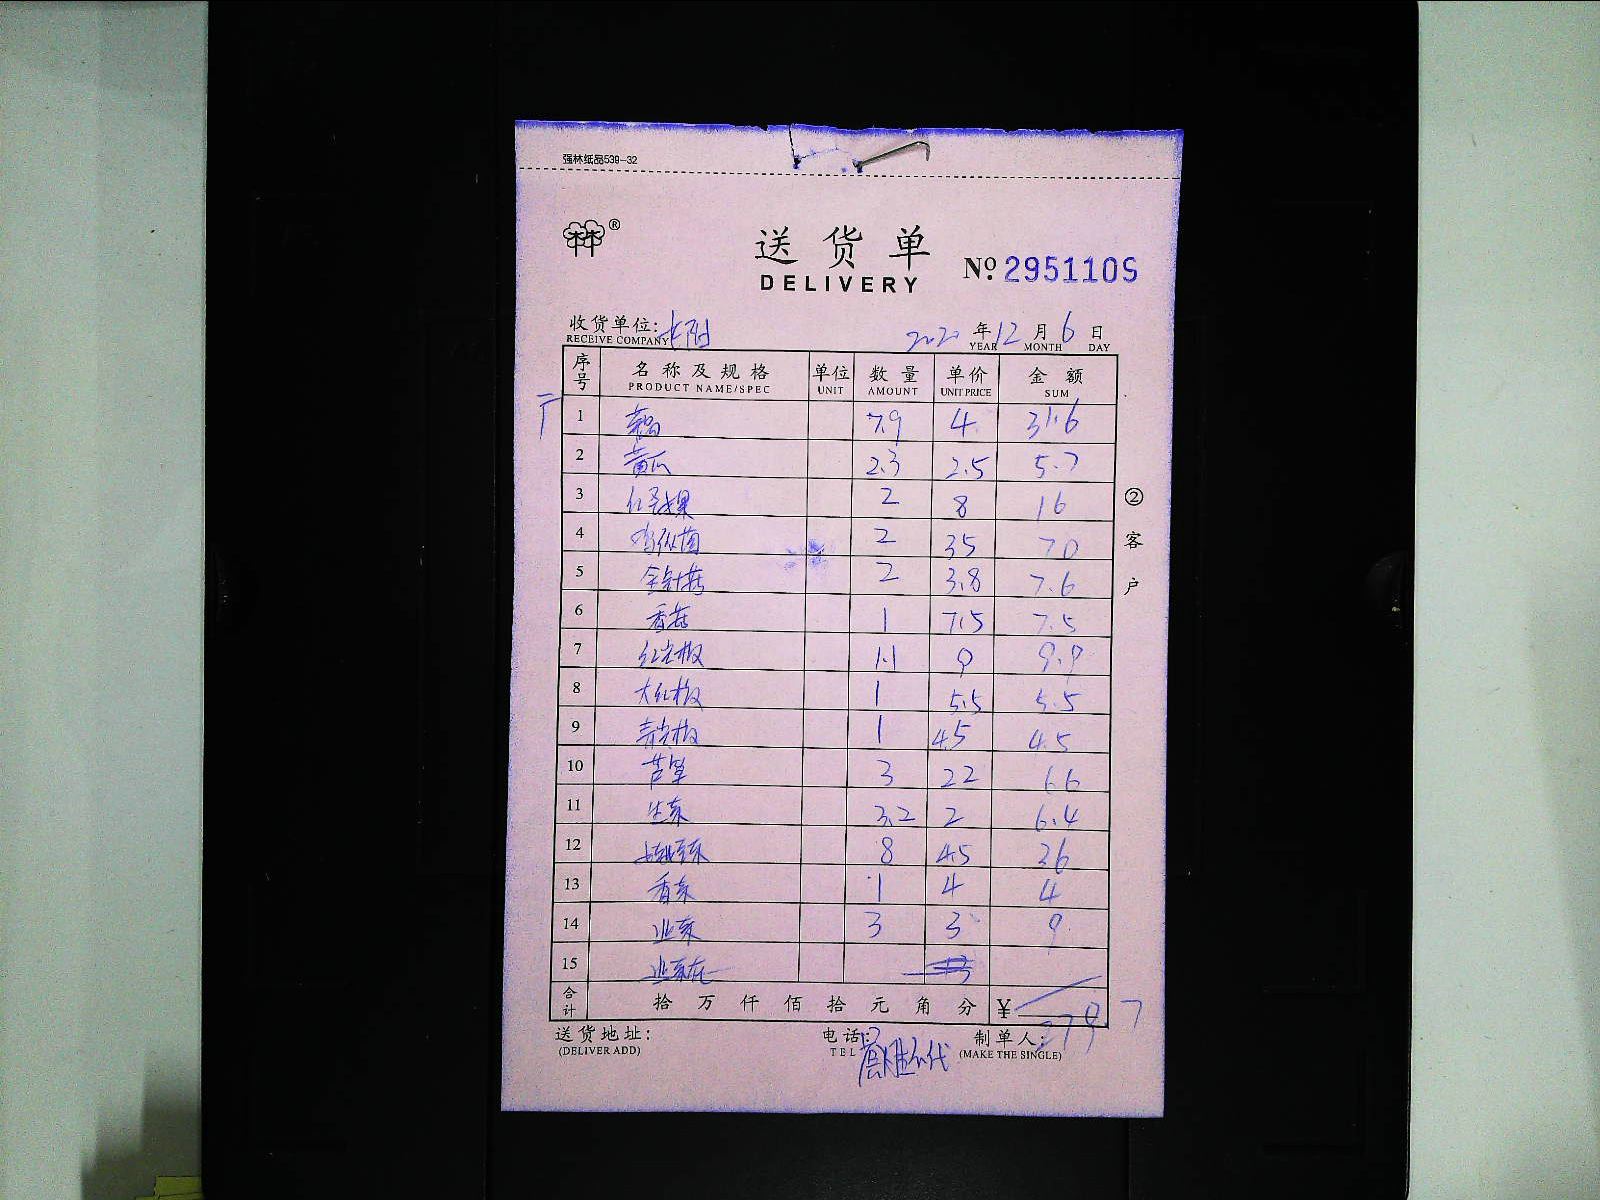 强林纸品539-32
林®
送货单
DELIVERY
№ 2951109
收货单位:
RECEIVE COMPANY
2020 年 12 月 6 日
YEAR MONTH DAY
序号 名称及规格 单位 数量 单价 金额
PRODUCT NAME/SPEC UNIT AMOUNT UNIT PRICE SUM
1 7.9 4 31.6
2 黄瓜 2.3 2.5 5.7
3 2 8 16
4 鸡枞菌 2 35 70
5 金针菇 2 3.8 7.6
6 香菇 1 7.5 7.5
7 红尖椒 1.1 9 9.9
8 大红椒 1 5.5 5.5
9 青尖椒 1 4.5 4.5
10 芦笋 3 22 66
11 生菜 3.2 2 6.4
12 8 4.5 36
13 香菜 1 4 4
14 3 3 9
15
合计 拾 万 仟 佰 拾 元 角 分 ¥ 279.7
②客户
送货地址: 电话: 制单人:
(DELIVER ADD) TEL (MAKE THE SINGLE)